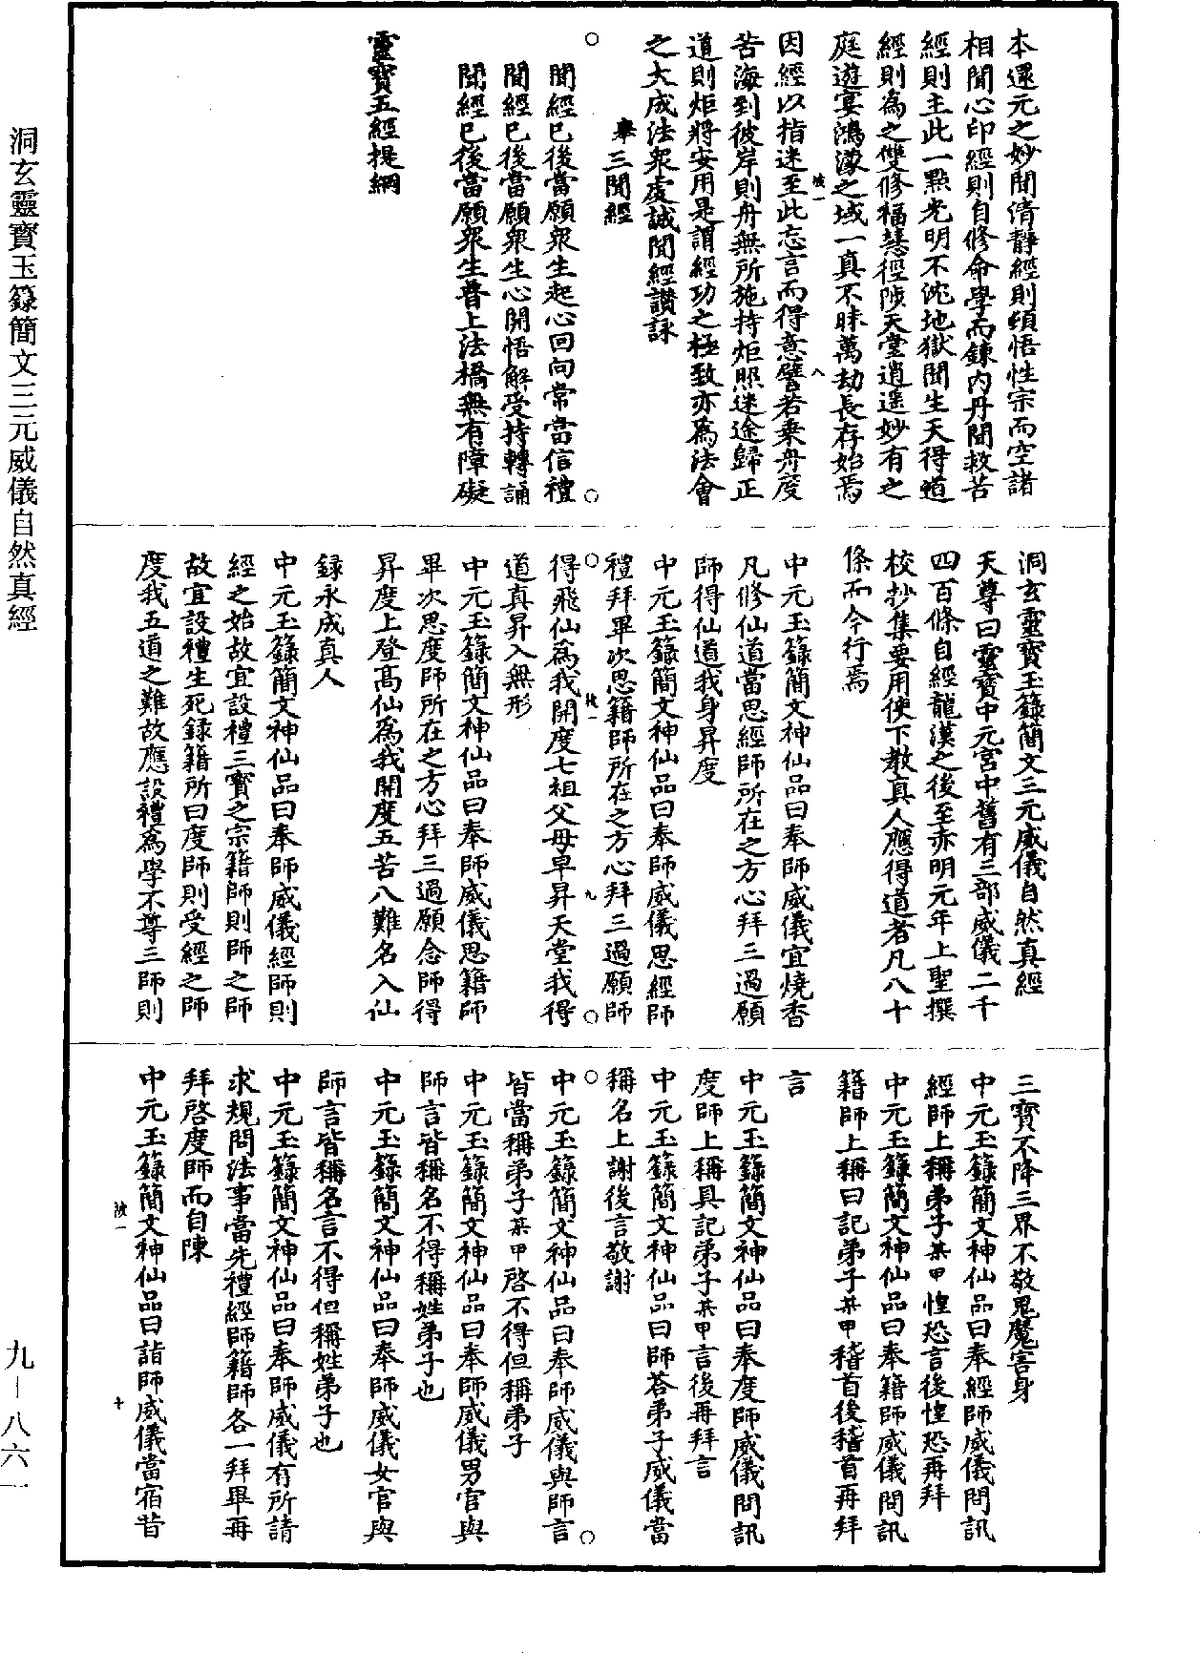 本還元之妙聞清靜經則頓悟性宗而空諸
相聞心印經則自修命學而鍊內丹聞救苦
經則主此一點光明不沈地獄聞生天得道
經則為之雙修福慧徑陟天堂逍遥妙有之
庭遊宴鴻濛之域一真不昧萬劫長存始焉
因經以指迷至此忘言而得意譬若乗舟度
苦海到彼岸則舟無所施持炬照迷途歸正
道則炬將安用是謂經功之極致亦為法會
之大成法衆虔誠聞經讚詠
舉三聞經
聞經已後當願衆生起心回向常當信禮
聞經已後當願衆生心開悟解受持轉誦
聞經已後當願衆生普上法橋無有障礙
靈寶五經提綱
洞玄靈寶玉籙簡文三元威儀自然真經
天尊曰靈寶中元宮中舊有三部威儀二千
四百條自經龍漢之後至赤明元年上聖撰
校抄集要用使下教真人應得道者凡八十
條而今行焉
中元玉籙簡文神仙品曰奉師威儀宜燒香
凡修仙道當思經師所在之方心拜三過願
師得仙道我身昇度
中元玉籙簡文神仙品曰奉師威儀思經師
禮拜畢次思籍師所在之方心拜三過願師
得飛仙為我開度七祖父母早昇天堂我得
道真昇入無形
中元玉籙簡文神仙品曰奉師威儀思籍師
畢次思度師所在之方心拜三過願念師得
昇度上登高仙為我開度五苦八難名入仙
録永成真人
中元玉籙簡文神仙品曰奉師威儀經師則
經之始故宜設禮三寶之宗籍師則師之師
故宜設禮生死録籍所曰度師則受經之師
度我五道之難故應設禮為學不尊三師則
三寶不降三界不敬鬼魔害身
中元玉籙簡文神仙品曰奉經師威儀問訊
經師上稱弟子某甲惶恐言後惶恐再拜
中元玉籙簡文神仙品曰奉籍師威儀問訊
籍師上稱曰記弟子某甲稽首後稽首再拜
言
中元玉籙簡文神仙品曰奉度師威儀問訊
度師上稱具記弟子某甲言後再拜言
中元玉籙簡文神仙品曰師荅弟子威儀當
稱名上謝後言敬謝
中元玉籙簡文神仙品曰奉師威儀與師言
皆當稱弟子某甲啓不得但稱弟子
中元玉籙簡文神仙品曰奉師威儀男官與
師言皆稱名不得稱姓弟子也
中元玉籙簡文神仙品曰奉師威儀女官與
師言皆稱名言不得但稱姓弟子也
中元玉籙簡文神仙品曰奉師威儀有所請
求規問法事當先禮經師籍師各一拜畢再
拜啓度師而自陳
中元玉籙簡文神仙品曰詣師威儀當宿昔
洞玄靈寶玉籙簡文三元威儀自然真經
九－八六一